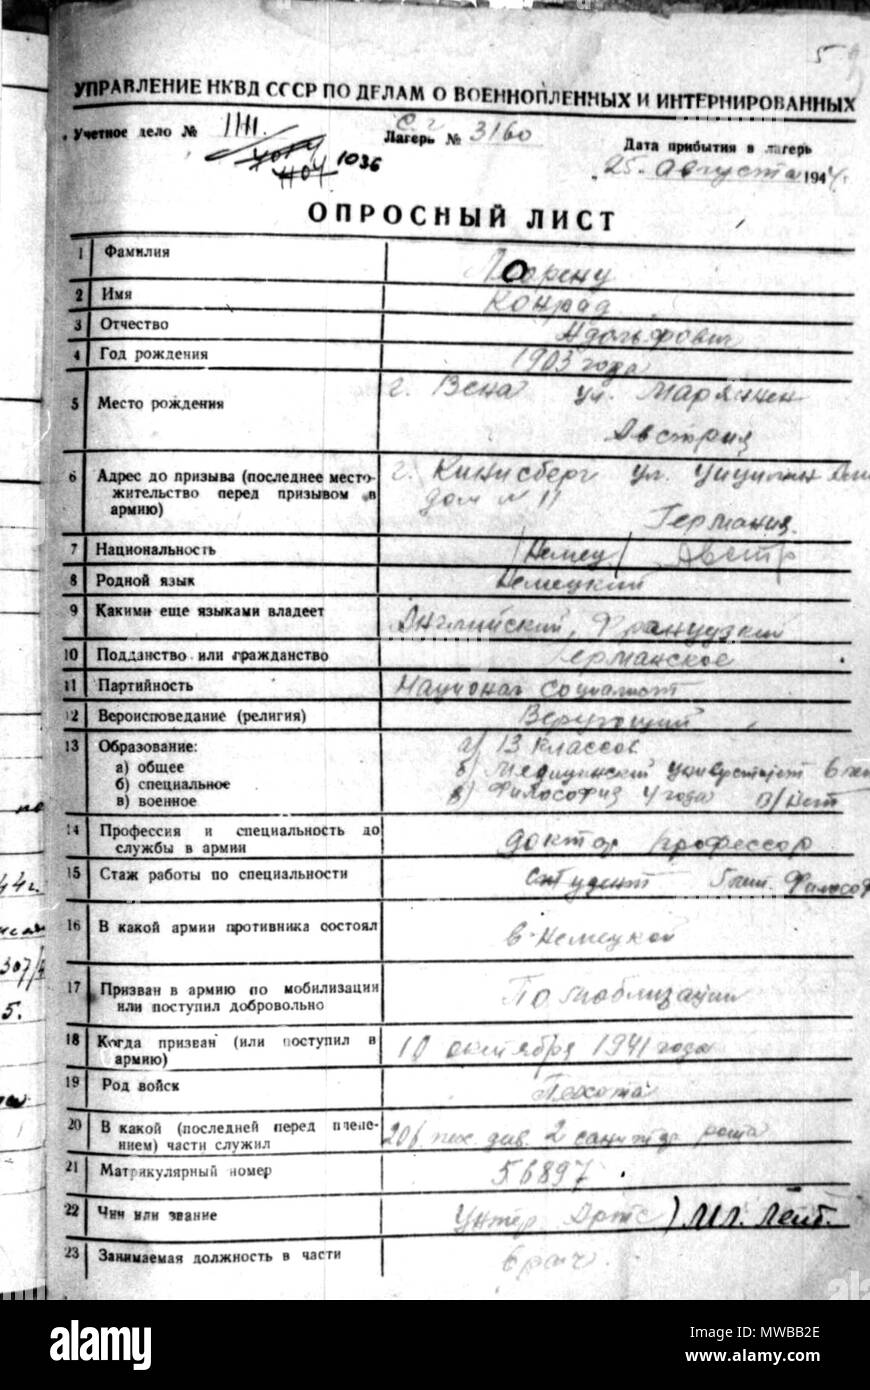 5
УПРАВЛЕНИЕ НКВД СССР ПО ДЕЛАМ О ВОЕННОПЛЕННЫХ И ИНТЕРНИРОВАННЫХ
Учетное дело № 1111. Лагерь № 3160
1036
Дата прибытия в лагерь
„25 августа 1944 г.
ОПРОСНЫЙ ЛИСТ
1 Фамилия Лоренц
2 Имя Конрад
3 Отчество Адольфович
4 Год рождения 1903 года
5 Место рождения г. Вена ул. Марянцен
Австрия
6 Адрес до призыва (последнее место-
жительство перед призывом в
армию)
г. Кинисберг ул.
дом № 11
Германия.
7 Национальность /Немец/ Австр
8 Родной язык Немецкий
9 Какими еще языками владеет Английский, Французкий
10 Подданство или гражданство Германское
11 Партийность Национал социалист
12 Вероисповедание (религия) Верующий
13 Образование:
а) общее а) 13 классов
б) специальное б) Медицинский университет 6
в) военное в) Философия 4 года в/ Нет
14 Профессия и специальность до
службы в армии
доктор профессор
15 Стаж работы по специальности студент Философ
16 В какой армии противника состоял в Немецкой
17 Призван в армию по мобилизации
или поступил добровольно
По мобилизации
18 Когда призван (или поступил в
армию)
10 октября 1941 года
19 Род войск Пехота
20 В какой (последней перед плене-
нием) части служил
206 пех. див. 2 санит рота
21 Матрикулярный номер 56897.
22 Чин или звание Унтер Артс) Мл. Лейт.
23 Занимаемая должность в части врач.
44 г.
307/
5.
alamy
Image ID: MWBB2E
www.alamy.com